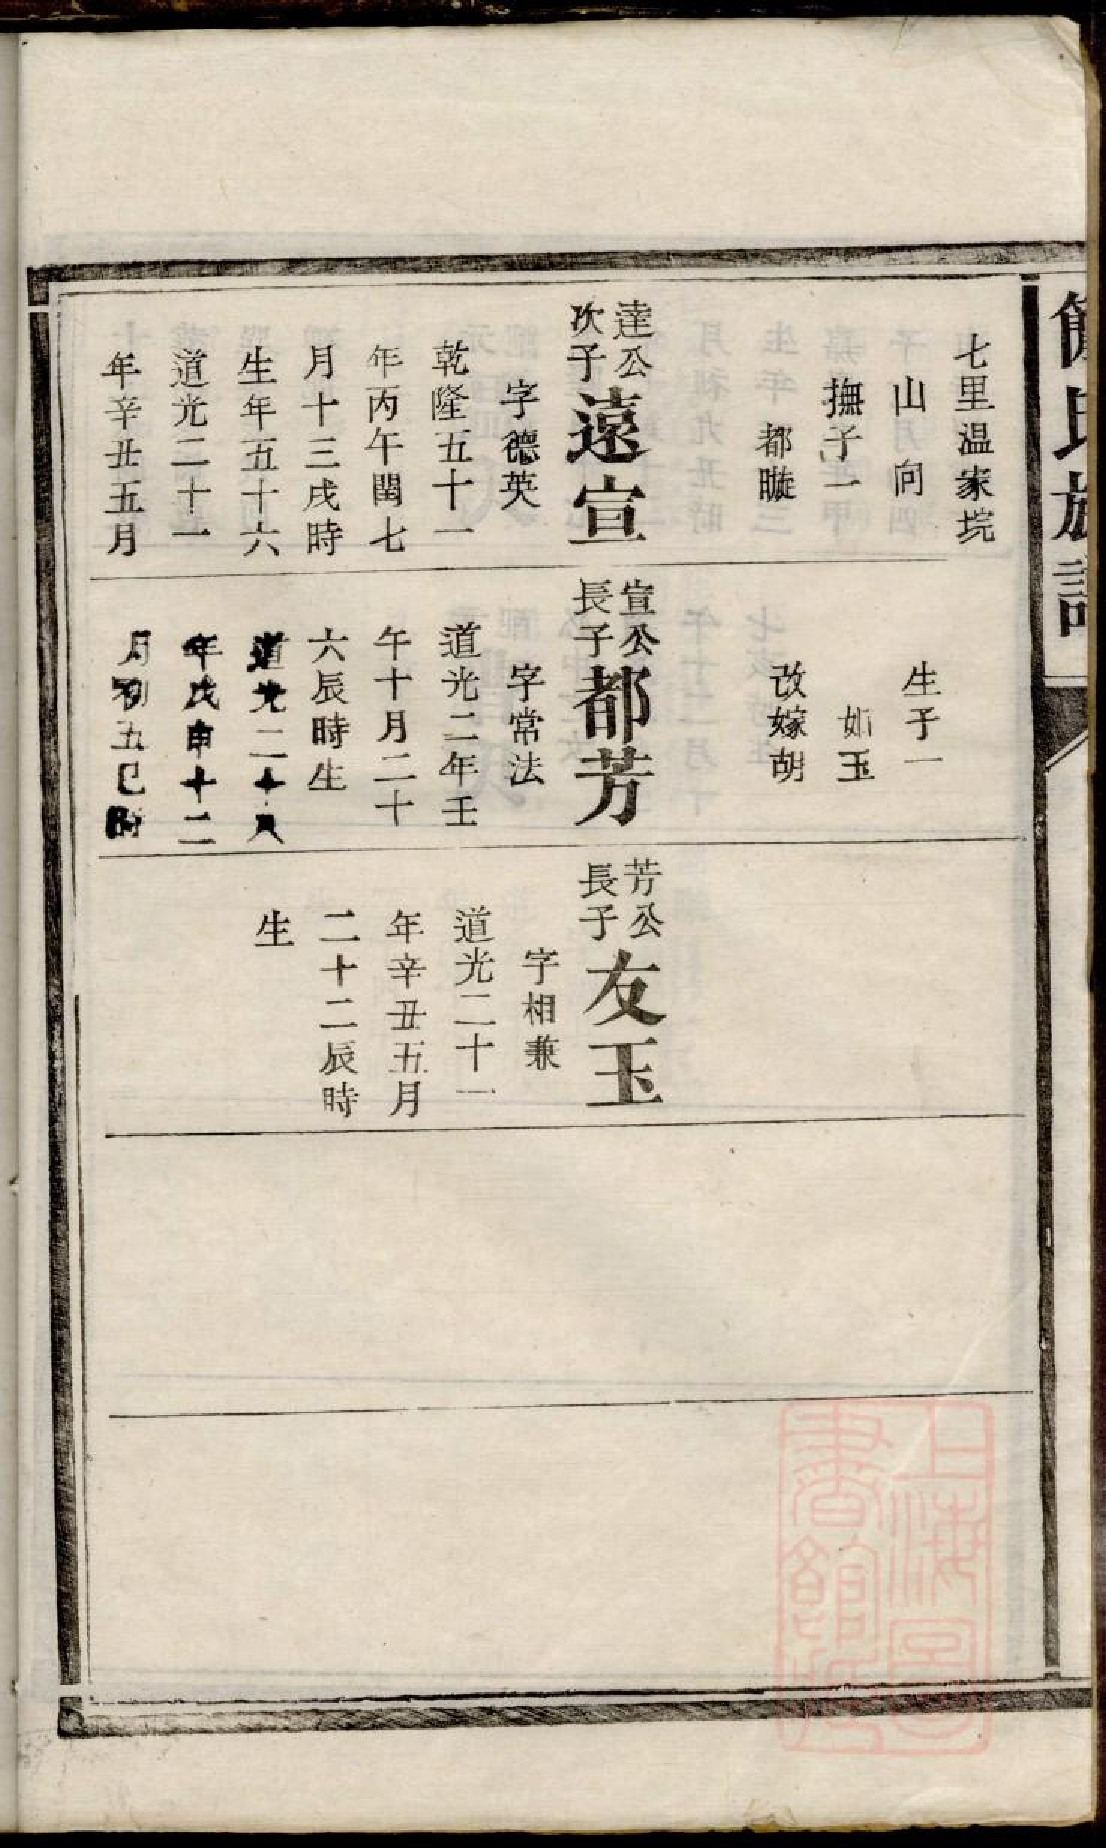 氏族譜
七里温家垸
山向
撫子一
都暶
達公
次子
遠宣
字德英
乾隆五十一
年丙午閏七
月十三戌時
生年五十六
道光二十一
年辛丑五月
生子一
如玉
改嫁胡
宣公
長子
都芳
字常法
道光二年壬
午十月二十
六辰時生
道光二十八
年戊申十二
月初五巳時
芳公
長子
友玉
字相兼
道光二十一
年辛丑五月
二十二辰時
生
上海圖
書館藏